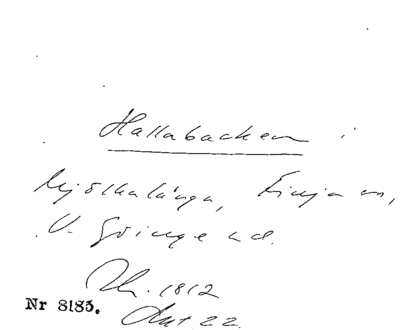 Hallabacken i
Mjölkalånga, Finja sn,
V. Göinge hd.
Th. 1812
Ant 22.
Nr 8185.